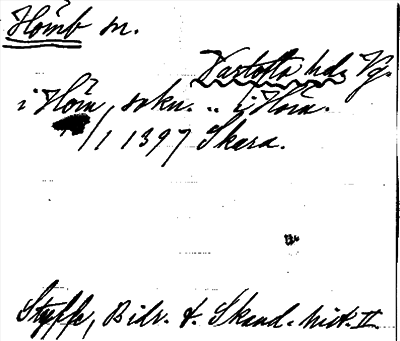 Hömb sn.
Vartofta hd, Vg.
i Höm, sokn. .. i Höm.
/1 1397 Skara.
Styffe, Bidr. t. Skand. hist. II.